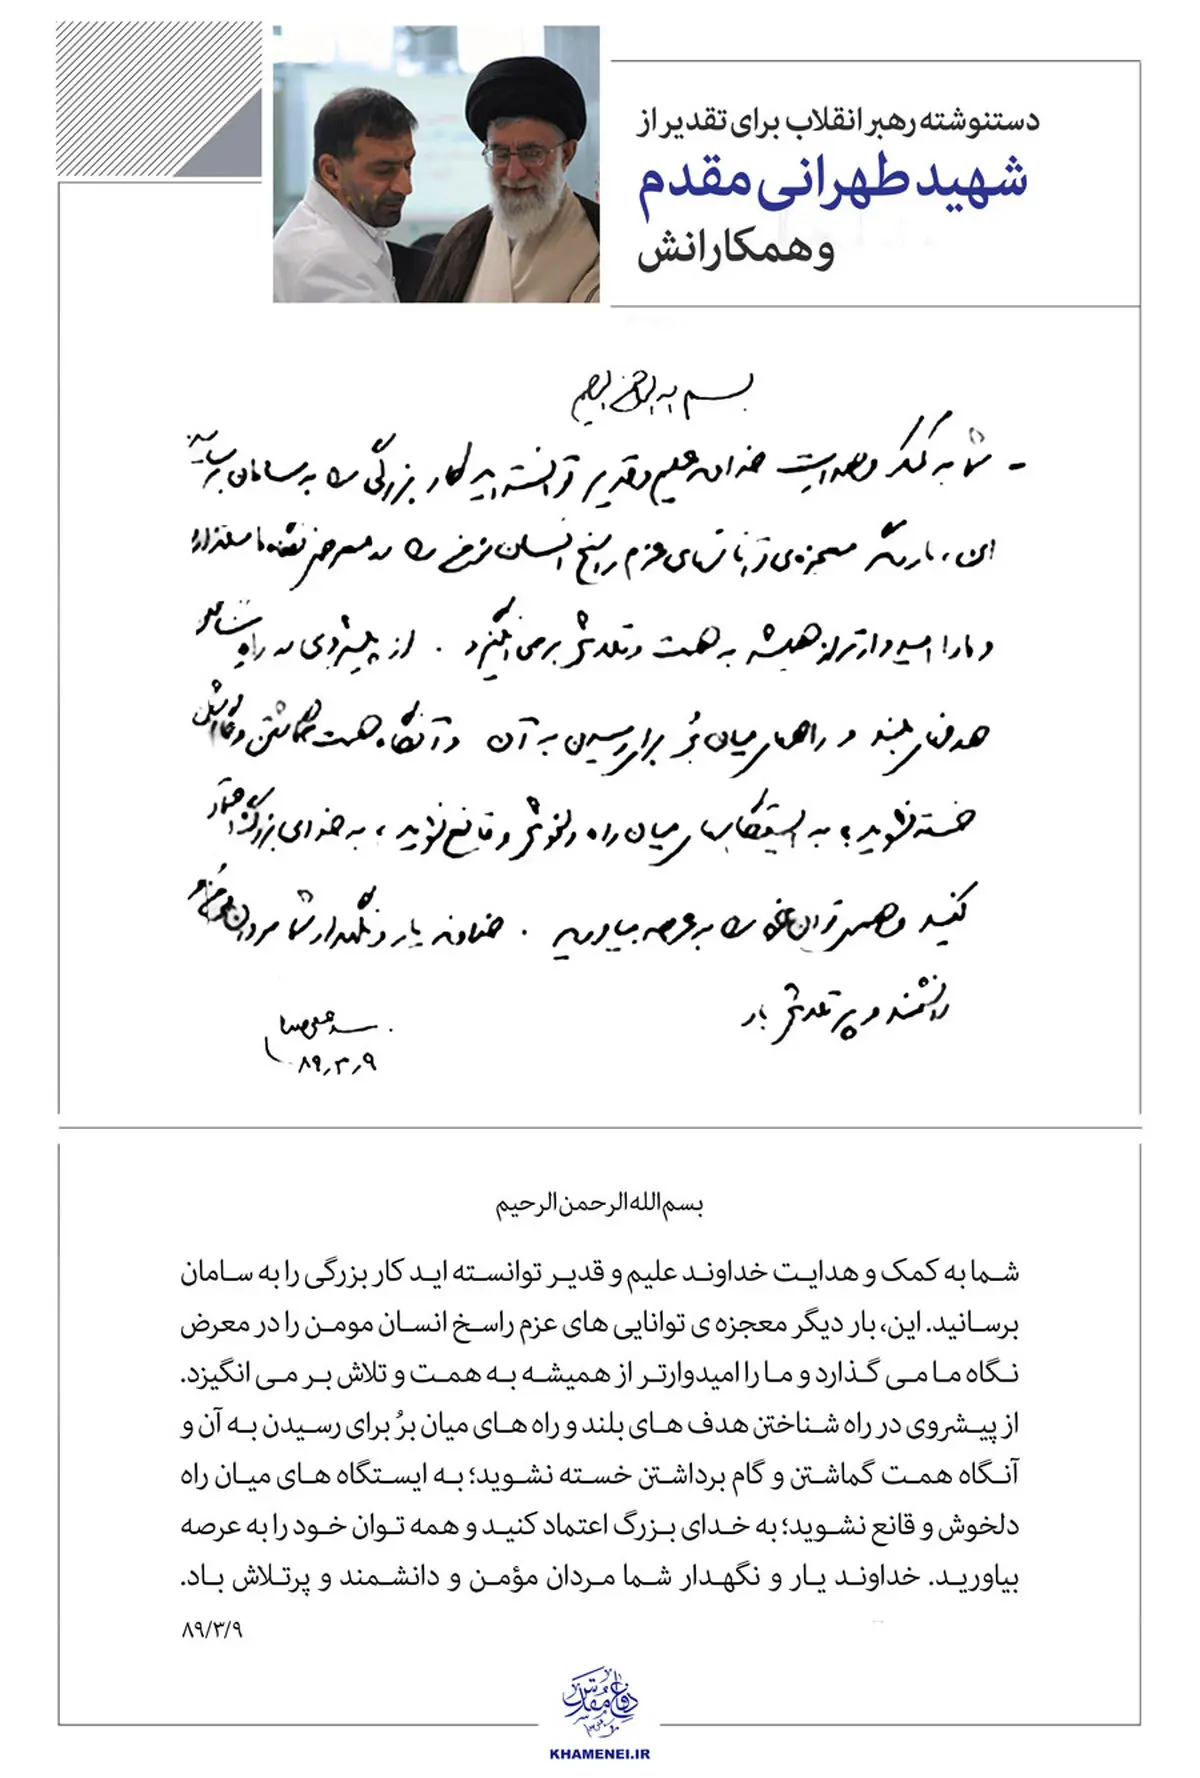 دستنوشته رهبر انقلاب برای تقدیر از
شهید طهرانی مقدم
و همکارانش
بسم الله الرحمن الرحیم
- شما به کمک و هدایت خداوند علیم و قدیر توانسته‌اید کار بزرگی را به سامان برسانید
این، بار دیگر معجزه‌ی توانائیهای عزم راسخ انسان مؤمن را در معرض نگاه ما میگذارد
و ما را امیدوارتر از همیشه به همت و تلاش برمی‌انگیزد. از پیشروی در راه شناختن
هدفهای بلند و راههای میان‌بُر برای رسیدن به آن و آنگاه همت گماشتن و گام برداشتن
خسته نشوید؛ به ایستگاههای میان راه دلخوش و قانع نشوید؛ به خدای بزرگ اعتماد
کنید و همه‌ی توان خود را به عرصه بیاورید. خداوند یار و نگهدار شما مردان مؤمن و
دانشمند و پرتلاش باد
سید علی خامنه‌ای
۸۹٫۳٫۹
بسم الله الرحمن الرحیم
شما به کمک و هدایت خداوند علیم و قدیر توانسته اید کار بزرگی را به سامان
برسانید. این، بار دیگر معجزه ی توانایی های عزم راسخ انسان مومن را در معرض
نگاه ما می گذارد و ما را امیدوارتر از همیشه به همت و تلاش بر می انگیزد.
از پیشروی در راه شناختن هدف های بلند و راه های میان برُ برای رسیدن به آن و
آنگاه همت گماشتن و گام برداشتن خسته نشوید؛ به ایستگاه های میان راه
دلخوش و قانع نشوید؛ به خدای بزرگ اعتماد کنید و همه توان خود را به عرصه
بیاورید. خداوند یار و نگهدار شما مردان مؤمن و دانشمند و پرتلاش باد.
۸۹/۳/۹
دفاع مقدس
KHAMENEI.IR